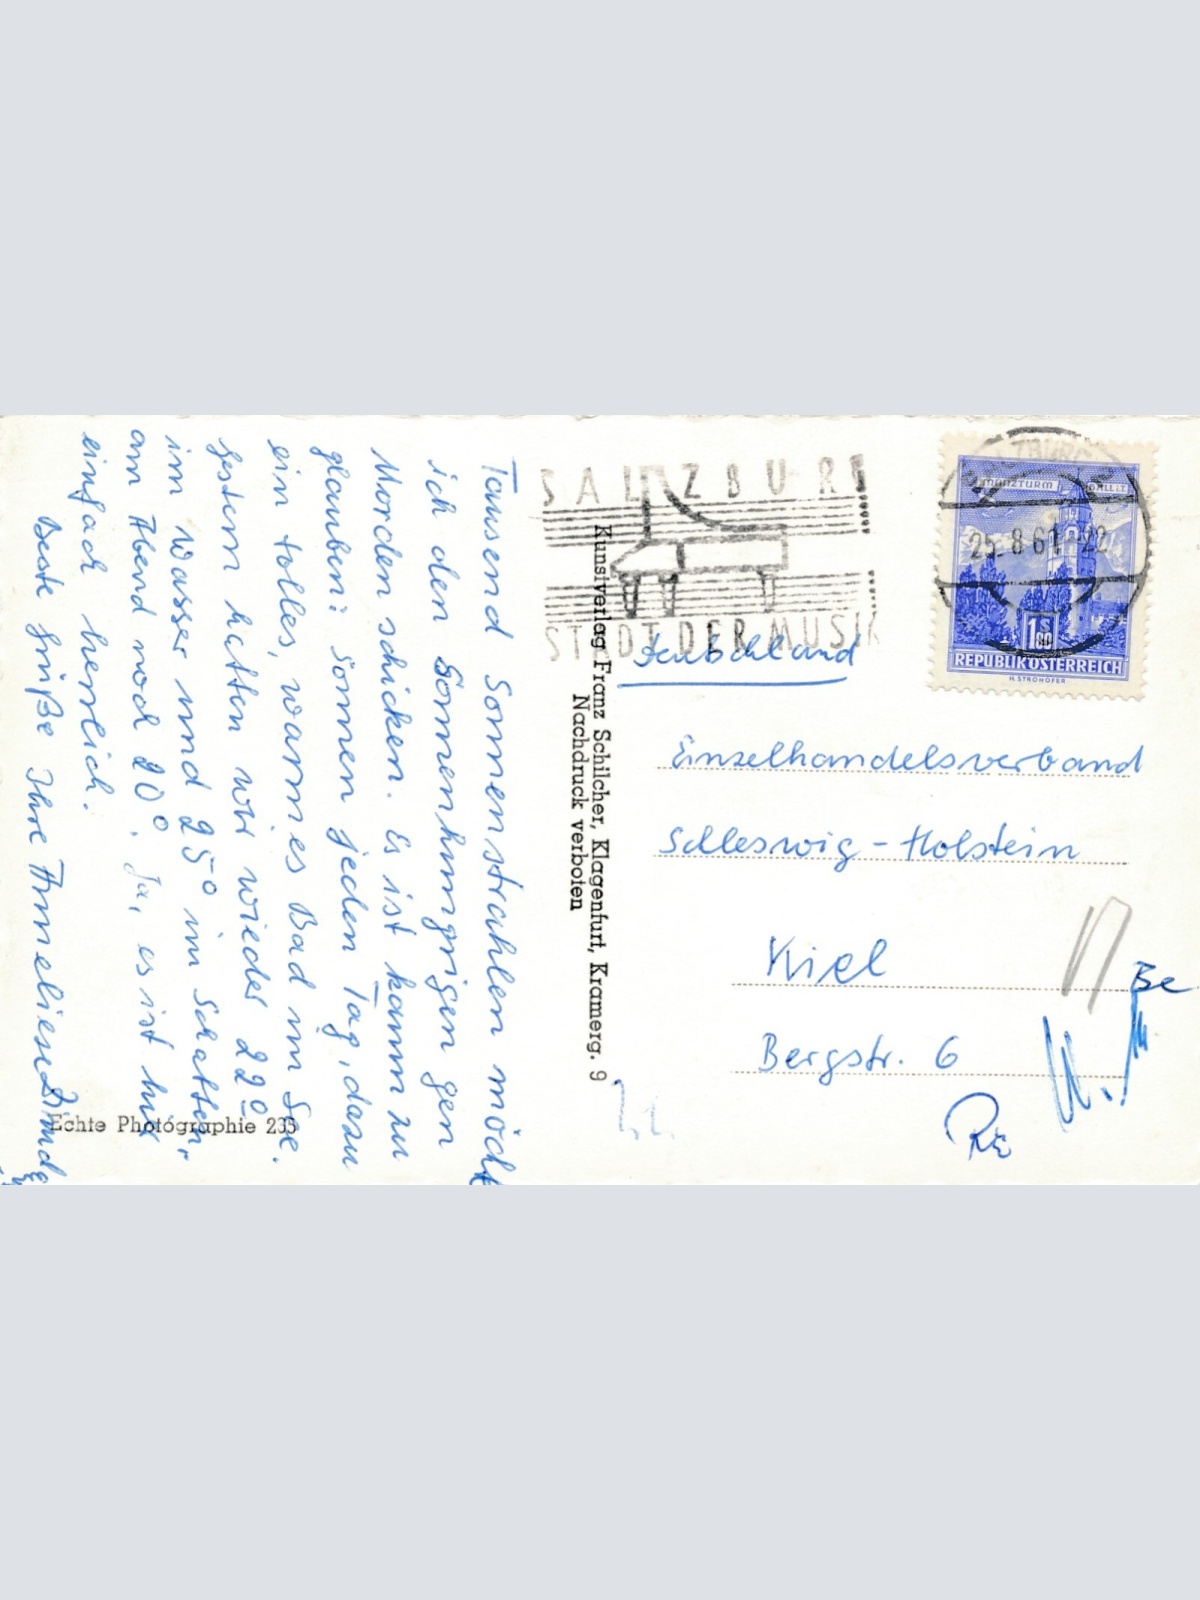 Tausend Sonnenstrahlen möcht
ich den Sonnenhungrigen gen
Norden schicken. Es ist kaum zu
glauben: Sonnen jeden Tag, dazu
ein tolles, warmes Bad im See.
Gestern hatten wir wieder 22°
im Wasser und 25° im Schatten,
am Abend noch 20°. Ja, es ist hier
einfach herrlich.
Beste Grüße Ihre Anneliese
Echte Photographie 233
Kunstverlag Franz Schilcher, Klagenfurt, Kramerg. 9
Nachdruck verboten
SALZBURG
STADT DER MUSIK
SALZBURG
25.8.61-22
MÜNZTURM HALL i.T.
1 S 80
REPUBLIK ÖSTERREICH
H. STROHOFER
Deutschland
Einzelhandelsverband
Schleswig-Holstein
Kiel
Bergstr. 6
Be